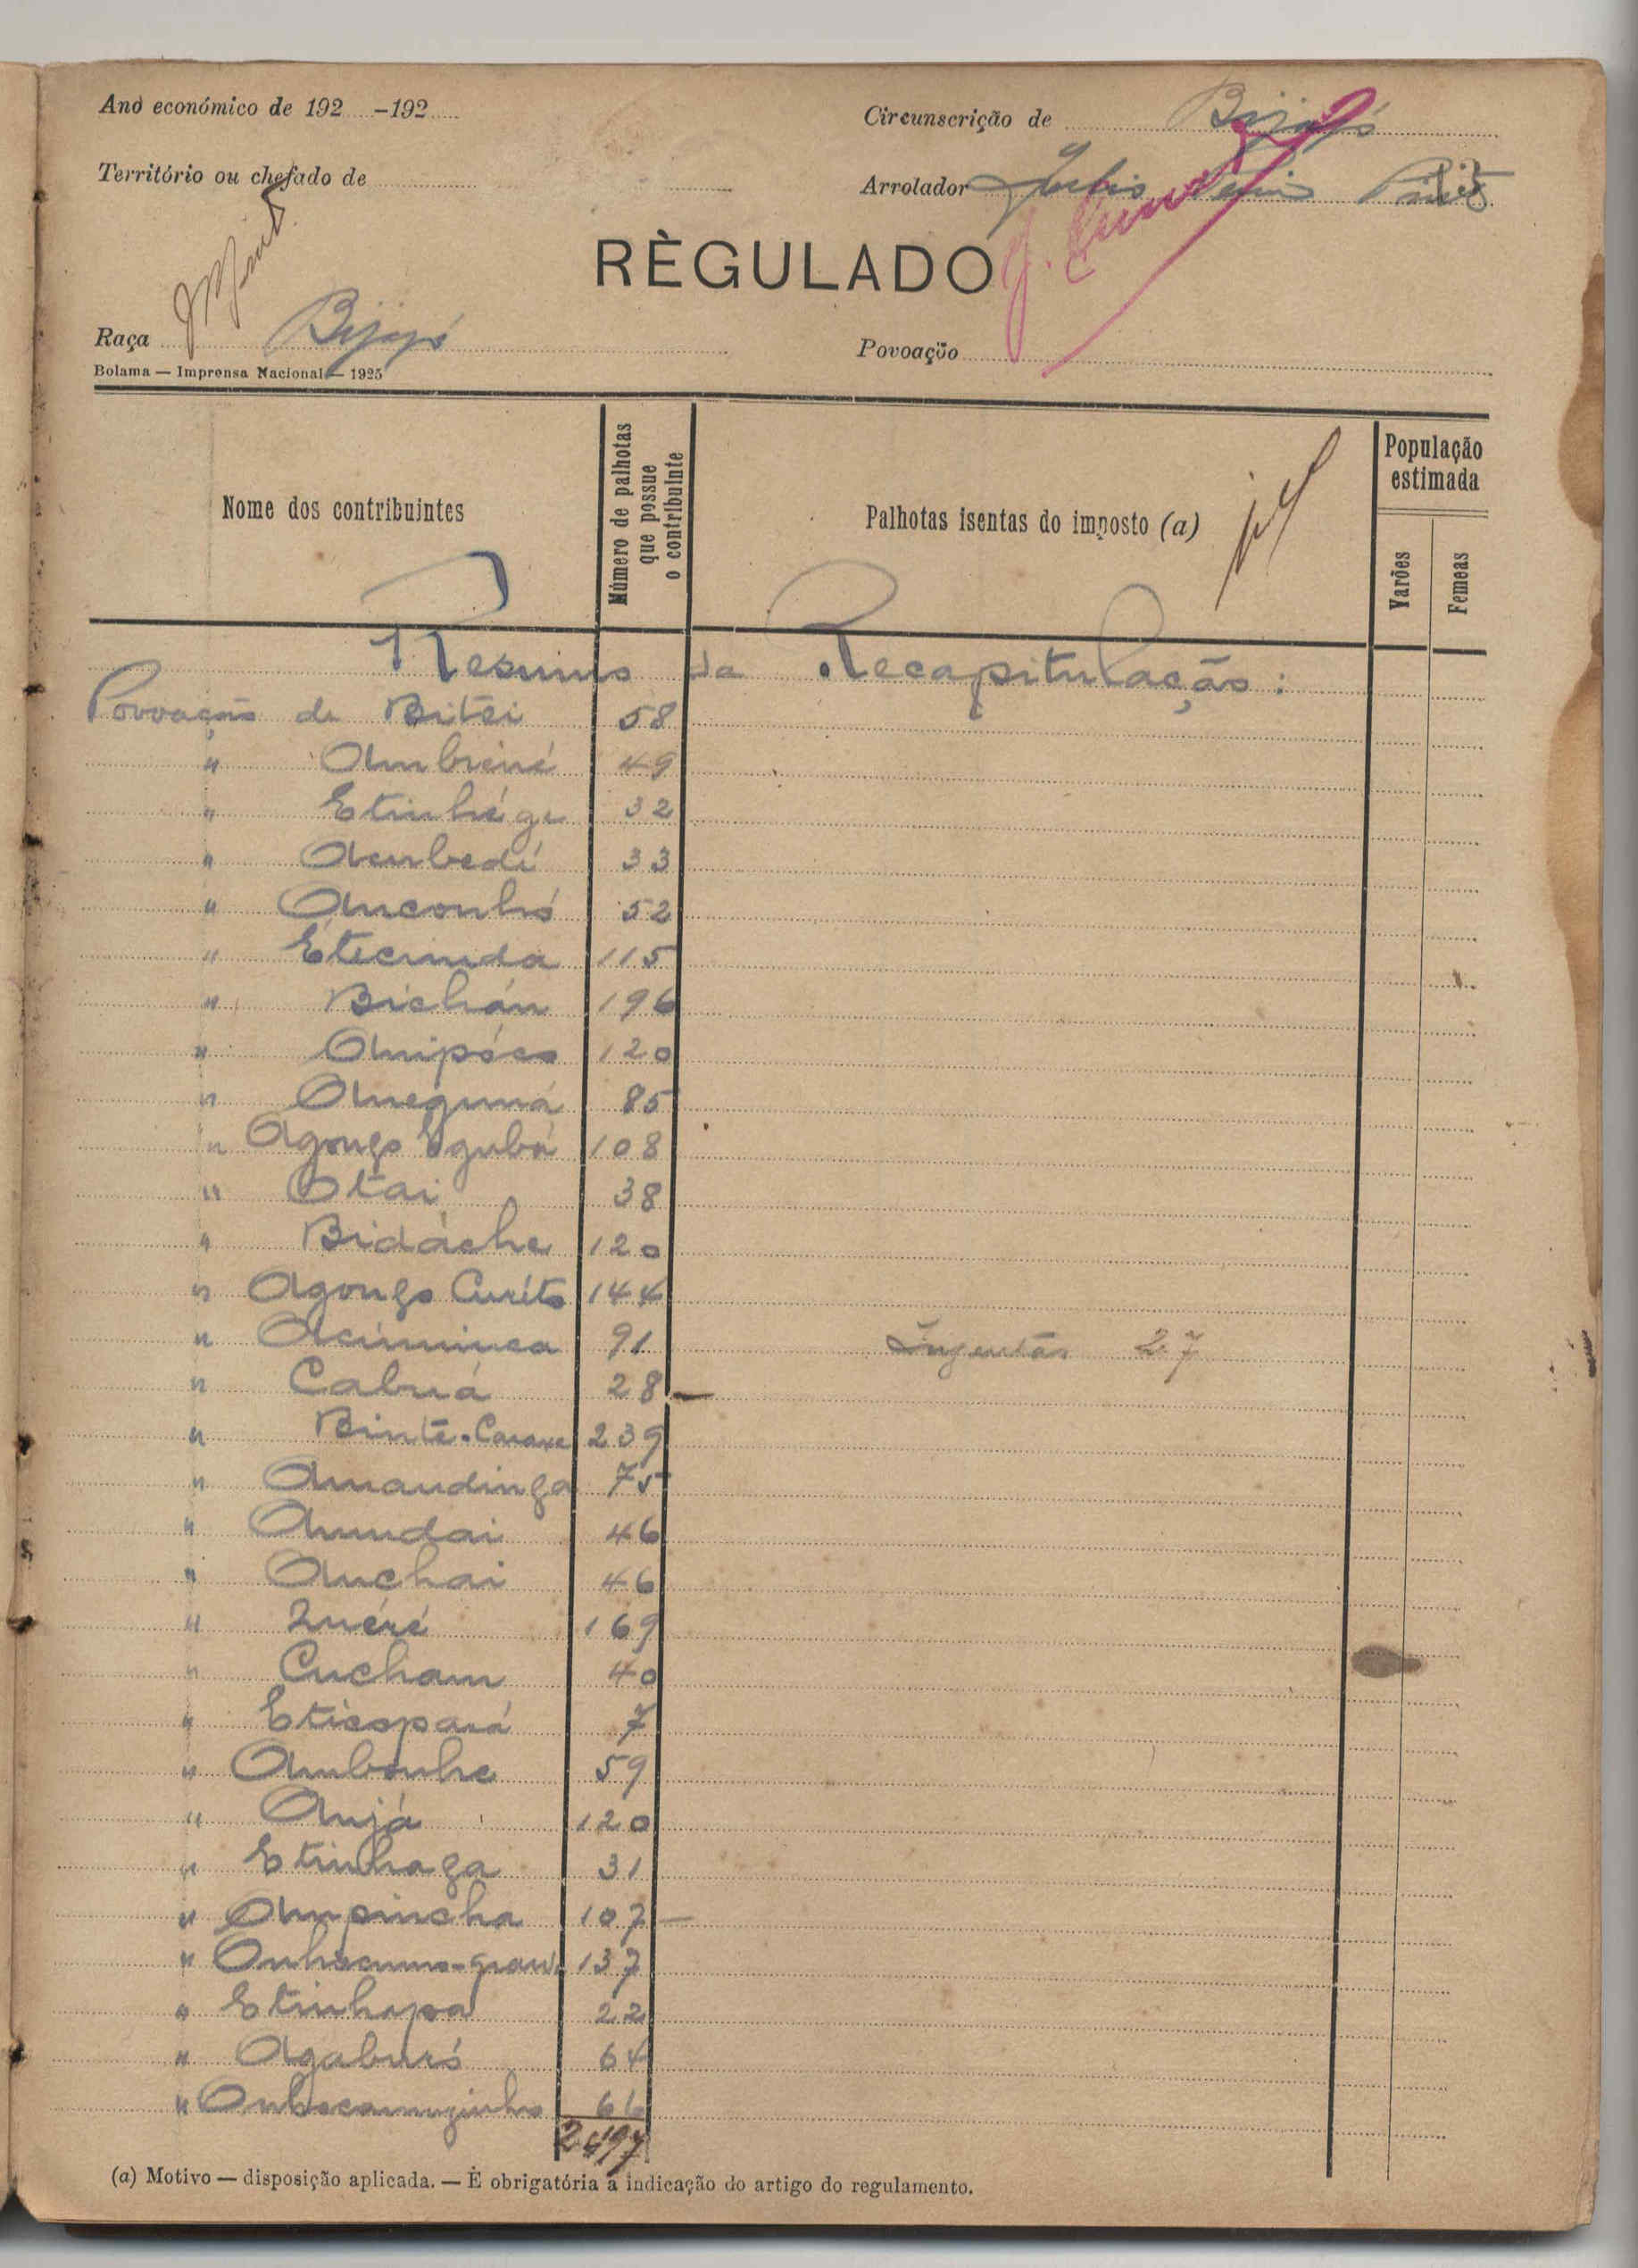 Ano económico de 192 -192
Circunscrição de Bijagós
Território ou chefado de
Arrolador Julio Pinto
RÈGULADO
Raça Bijagó
Povoação
Bolama — Imprensa Nacional — 1925
Nome dos contribuintes
Número de palhotas que possue o contribuinte
Palhotas isentas do imposto (a)
População estimada
Varões
Femeas
Resumo da Recapitulação:
Povoação de Bitei 58
" Ambrené 49
" Etinhége 32
" Acubedé 33
" Anconhó 52
" Étecunda 115
" Bichán 196
" Anipóco 120
" Aneguná 85
" Agongo Egubá 108
" Otai 38
" Bidáche 120
" Agongo Curito 144
" Aciminca 91 Injentas 27
" Cabuá 28 —
" Binte-Carave 239
" Amandinga 75
" Anundai 46
" Anchai 46
" Queré 169
" Cucham 40
" Eticopará 7
" Ambonhe 59
" Anjá 120
" Etinhaga 31
" Ampincha 107 —
" Onhocumo-grand. 137
" Etinhapa 22
" Agaburó 64
" Onhocomozinho 66
2497
(a) Motivo — disposição aplicada. — É obrigatória a indicação do artigo do regulamento.